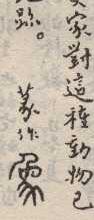 家對這種動物已
跡。
篆作